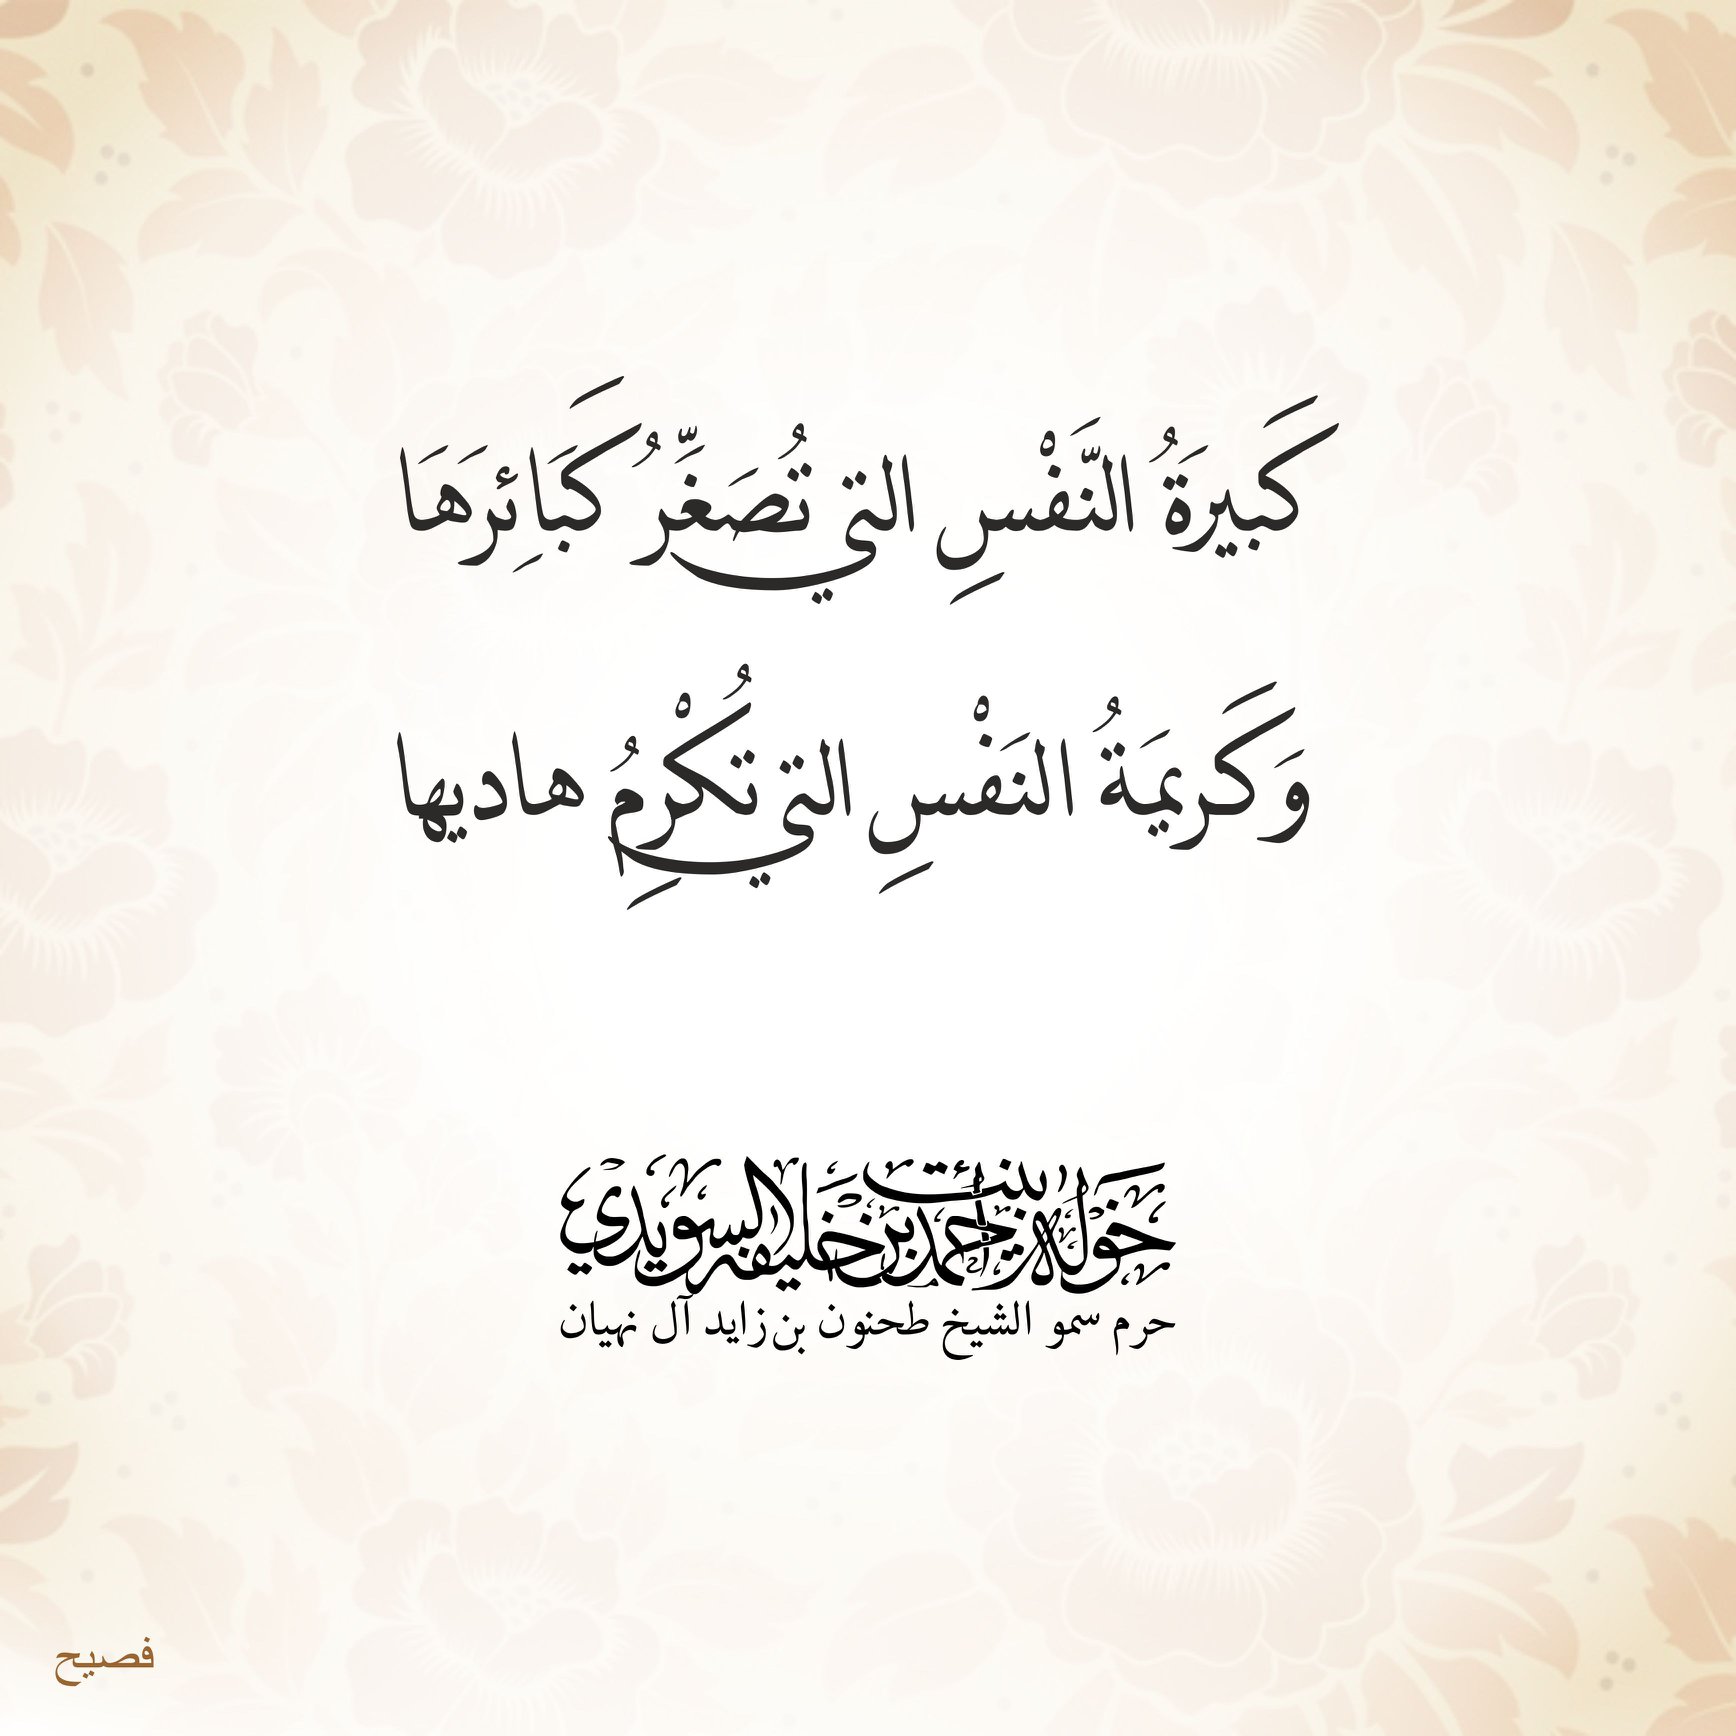 كَبيرَةُ النَّفْسِ التي تُصَغِّرُ كَبَائِرَهَا
وَكَريمَةُ النَفْسِ التي تُكْرِمُ هاديها
خولة بنت أحمد بن خليفة السويدي
حرم سمو الشيخ طحنون بن زايد آل نهيان
فصيح